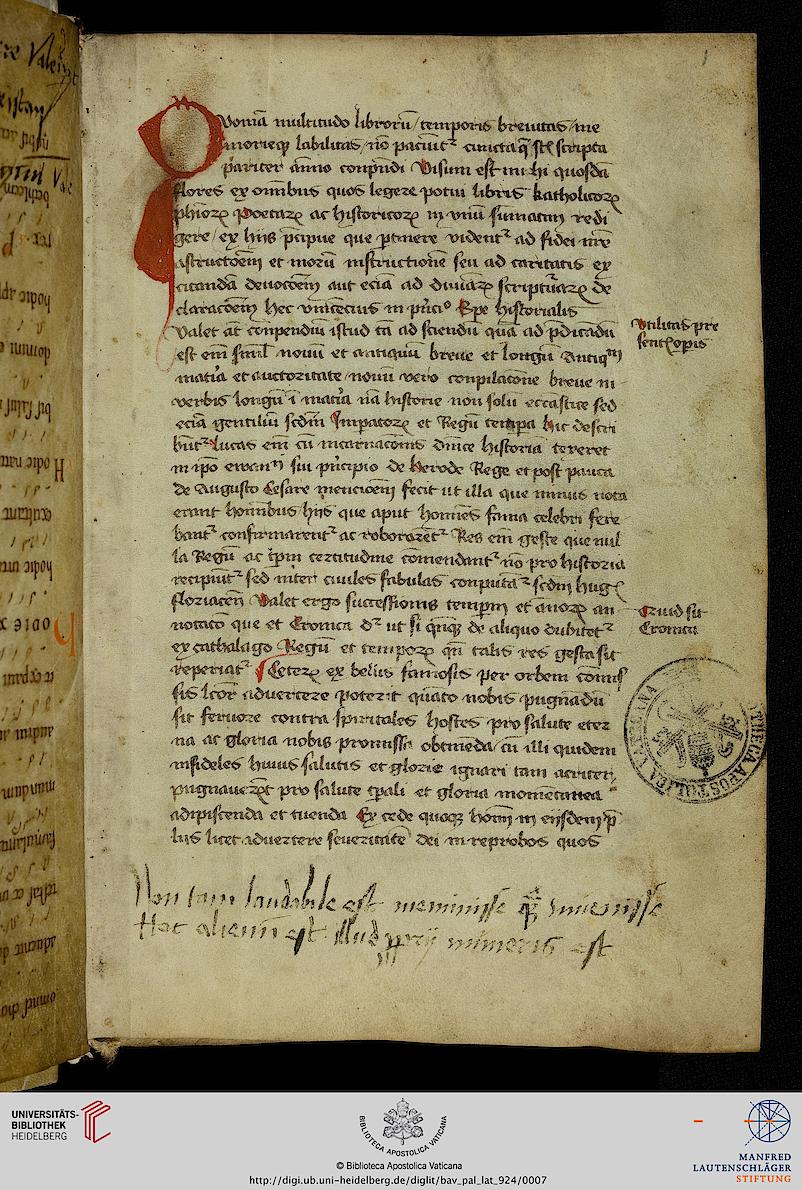 1
Quoniā multitudo librorū / temporis breuitas / me
morieqꝫ labilitas / nō paciūt᷑ cuncta q̄ sūt scripta
pariter āīmo conp̄ndi Visum est mihi quosdā
flores ex omībus quos legere potui libris katholicoꝝ
ph̄oꝝ Poetaꝝ ac historicoꝝ in vnū sūmatim redi
gere / ex hijs p̄cipue que ꝑtinere vident᷑ ad fidei nr̄e
astructōem et morū instructione seu ad caritatis ex
citandā deuocōem aut eciā ad diuīaꝝ scripturaꝝ de
claracōem hec vincecius in pⁱncᵒ Spe historialis
Valet at̄ conpendiū istud tā ad sciendū quā ad p̄dicādū
est em̄ simͥl nouū et antiquū breue et longū Antiqᵐ
matīa et auctoritate / nouū vero conpilacōne breue in
verbis longū ī matīa nā historie non solū eccāstice sed
eciā gentiliū scdm̄ Impatoꝝ et Regū tempa hic descri
būt᷑ Lucas em̄ cū incarnacōnis dn̄ice historiā texeret
in ip̄o ewanᵐ sui pⁱncipio de Herode Rege et post pauca
de Augusto Cesare mencioem̄ fecit ut illa que minus nota
erant hom̄ibus hijs que aput hom̄es fama celebri fere
bant᷑ confirmarent᷑ ac roborarēt᷑ Res em̄ geste que nul
la Regū ac tp̄m certitudine cōmendant᷑ nō pro historia
recipiūt᷑ sed inter ciuiles fabulas conputāt᷑ scdm̄ hug᷑
floriacen̄ Valet ergo successionis tempꝝ et an̄oꝝ an
notato que et Cronica d᷑ ut si qn̄qꝫ de aliquo dubitet᷑
ex cathalago Regū et tempoꝝ qn̄ talis res gesta sit
reperiat᷑ Ceteꝝ ex bellis famosis per orbem cōmis
sis lcōr aduertere poterit quāto nobis pugnādū
sit feruore contra spiritales hostes pro salute eter
na ac gloria nobis promissa obtinēda / cū illi quidem
infideles huius salutis et glorie ignari tam acriter
pugnauerūt pro salute tp̄ali et gloria momētanea
adipiscenda et tuenda Ex cede quoqꝫ hoīm in eijsdem p̄
lijs licet aduertere seueritatē dei in reprobos quos
Vtilitas pre
sentꝭ opis
Quid sit
Cronica
Non tam laudabile est meminisse q̄ȝ inuenisse
Hoc alienū est illud ꝓprij muneris est
BIBLIOTHECA APOSTOLICA VATICANA
UNIVERSITÄTS-
BIBLIOTHEK
HEIDELBERG
BIBLIOTECA APOSTOLICA VATICANA
© Biblioteca Apostolica Vaticana
http://digi.ub.uni-heidelberg.de/diglit/bav_pal_lat_924/0007
MANFRED
LAUTENSCHLÄGER
STIFTUNG